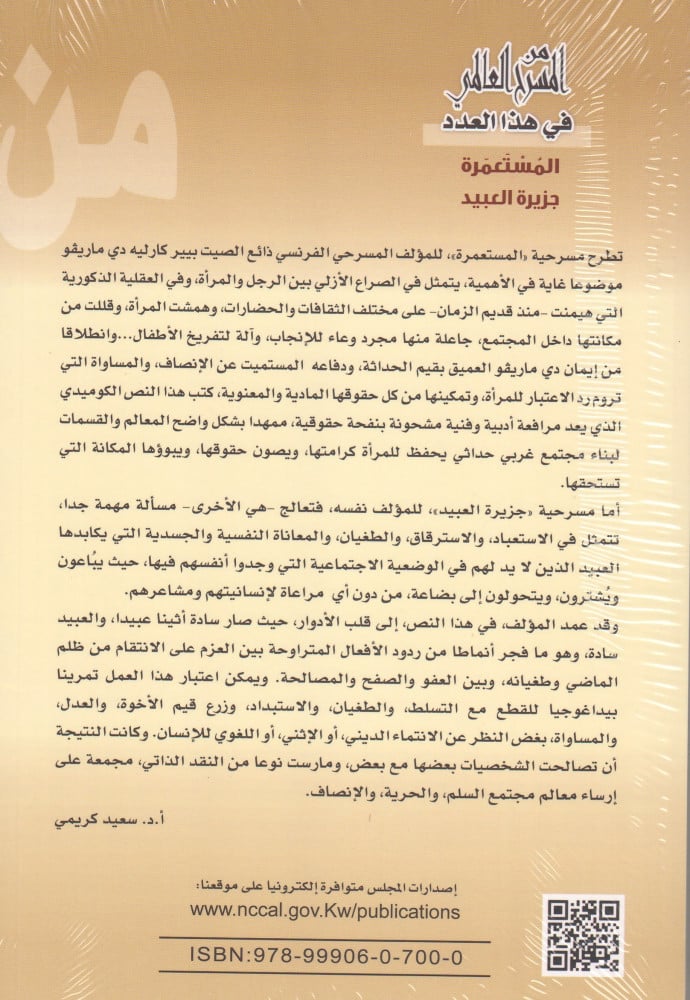 من
من
المسرح العالمي
في هذا العدد
المُسْتَعمَرة
جزيرة العبيد
تطرح مسرحية «المستعمرة»، للمؤلف المسرحي الفرنسي ذائع الصيت بيير كارليه دي ماريڤو
موضوعا غاية في الأهمية، يتمثل في الصراع الأزلي بين الرجل والمرأة، وفي العقلية الذكورية
التي هيمنت -منذ قديم الزمان- على مختلف الثقافات والحضارات، وهمشت المرأة، وقللت من
مكانتها داخل المجتمع، جاعلة منها مجرد وعاء للإنجاب، وآلة لتفريخ الأطفال...وانطلاقا
من إيمان دي ماريڤو العميق بقيم الحداثة، ودفاعه المستميت عن الإنصاف، والمساواة التي
تروم رد الاعتبار للمرأة، وتمكينها من كل حقوقها المادية والمعنوية، كتب هذا النص الكوميدي
الذي يعد مرافعة أدبية وفنية مشحونة بنفحة حقوقية، ممهدا بشكل واضح المعالم والقسمات
لبناء مجتمع غربي حداثي يحفظ للمرأة كرامتها، ويصون حقوقها، ويبوؤها المكانة التي
تستحقها.
أما مسرحية «جزيرة العبيد»، للمؤلف نفسه، فتعالج -هي الأخرى- مسألة مهمة جدا،
تتمثل في الاستعباد، والاسترقاق، والطغيان، والمعاناة النفسية والجسدية التي يكابدها
العبيد الذين لا يد لهم في الوضعية الاجتماعية التي وجدوا أنفسهم فيها، حيث يُباعون
ويُشترون، ويتحولون إلى بضاعة، من دون أي مراعاة لإنسانيتهم ومشاعرهم.
وقد عمد المؤلف، في هذا النص، إلى قلب الأدوار، حيث صار سادة أثينا عبيدا، والعبيد
سادة، وهو ما فجر أنماطا من ردود الأفعال المتراوحة بين العزم على الانتقام من ظلم
الماضي وطغيانه، وبين العفو والصفح والمصالحة. ويمكن اعتبار هذا العمل تمرينا
بيداغوجيا للقطع مع التسلط، والطغيان، والاستبداد، وزرع قيم الأخوة، والعدل،
والمساواة، بغض النظر عن الانتماء الديني، أو الإثني، أو اللغوي للإنسان. وكانت النتيجة
أن تصالحت الشخصيات بعضها مع بعض، ومارست نوعا من النقد الذاتي، مجمعة على
إرساء معالم مجتمع السلم، والحرية، والإنصاف.
أ.د. سعيد كريمي
إصدارات المجلس متوافرة إلكترونيا على موقعنا:
www.nccal.gov.Kw/publications
ISBN:978-99906-0-700-0